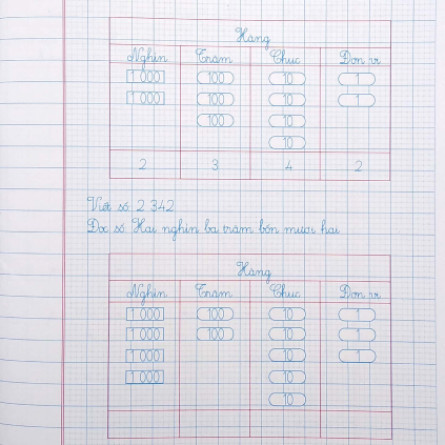 Hàng
Nghìn Trăm Chục Đơn vị
1 000 100 10 1
1 000 100 10 1
100 10
10
2 3 4 2
Viết số 2 342
Đọc số Hai nghìn ba trăm bốn mươi hai
Hàng
Nghìn Trăm Chục Đơn vị
1 000 100 10 1
1 000 100 10 1
1 000 10 1
1 000 10
10